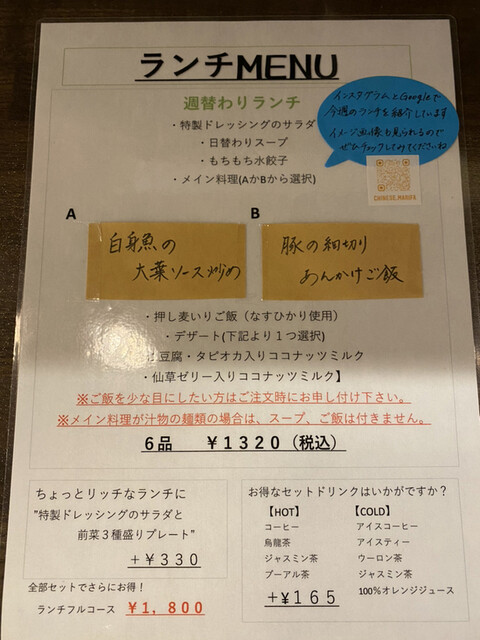 ランチMENU
週替わりランチ
・特製ドレッシングのサラダ
・日替わりスープ
・もちもち水餃子
・メイン料理(AかBから選択)
インスタグラムとGoogleで
今週のランチを紹介しています
イメージ画像も見られるので
ぜひチェックしてみてくださいね
CHINESE.MARIFA
A
白身魚の
大葉ソース炒め
B
豚の細切り
あんかけご飯
・押し麦いりご飯（なすひかり使用）
・デザート(下記より１つ選択)
豆腐・タピオカ入りココナッツミルク
・仙草ゼリー入りココナッツミルク】
※ご飯を少な目にしたい方はご注文時にお申し付け下さい。
※メイン料理が汁物の麺類の場合は、スープ、ご飯は付きません。
６品　￥１３２０（税込）
ちょっとリッチなランチに
”特製ドレッシングのサラダと
前菜３種盛りプレート”
＋￥３３０
全部セットでさらにお得！
ランチフルコース ￥１，８００
お得なセットドリンクはいかがですか？
【HOT】
コーヒー
烏龍茶
ジャスミン茶
プーアル茶
【COLD】
アイスコーヒー
アイスティー
ウーロン茶
ジャスミン茶
100%オレンジジュース
＋￥１６５